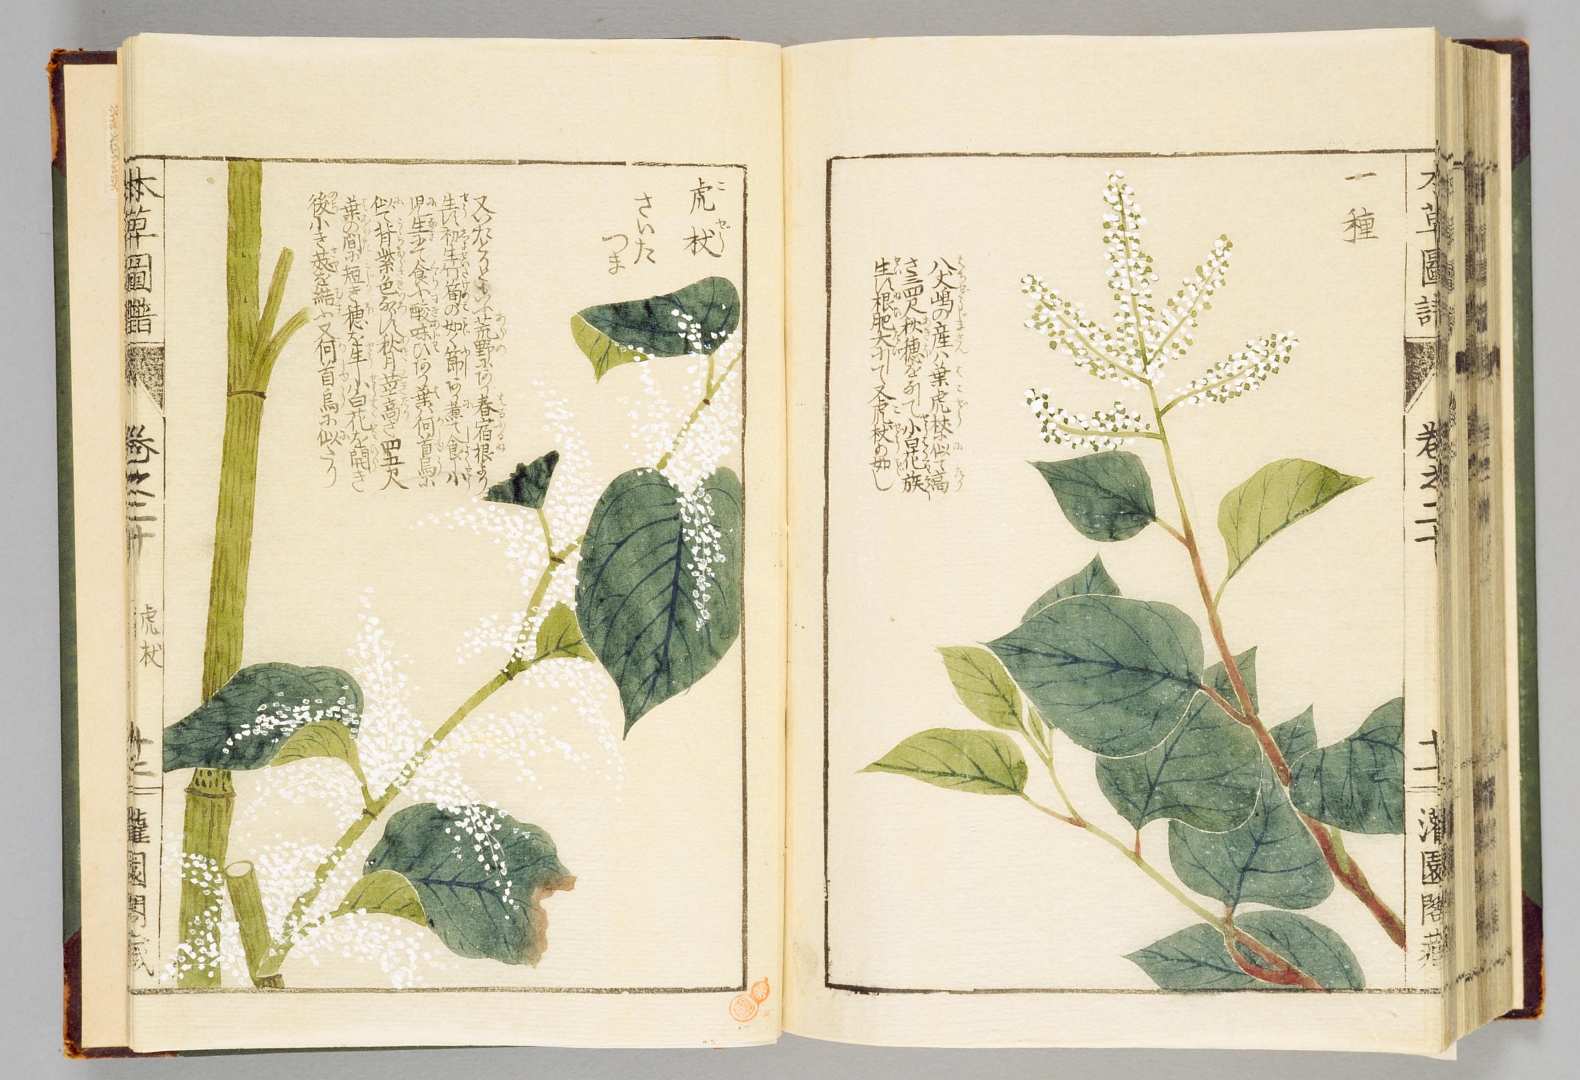 一種
八丈嶋の産ハ葉虎杖に似て高
さ三四尺秋穂をなして小白花族
生ス根肥大にして又虎杖の如し
本草圖譜
卷之二十
十二
灌園閣藏
虎杖
さいた
つま
生ス初生竹筍の如く節あり煮て食ふ小
児生にて食ふ酸味ひあり葉ハ何首烏に
似て背紫色なり秋月莖高さ四五尺
葉の間に短き穂を生す小白花を開き
後小き莢を結ふ又何首烏に似たり
本草圖譜
卷之二十
虎杖
灌園閣藏